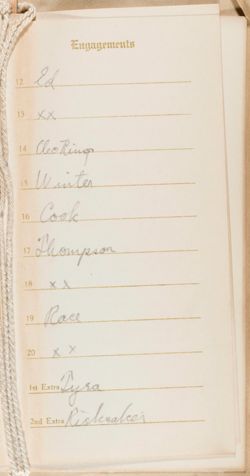 Engagements
12 Ed
13 xx
14 Cleo King
15 Winter
16 Cook
17 Thompson
18 x x
19 Race
20 x x
1st Extra Tyra
2nd Extra